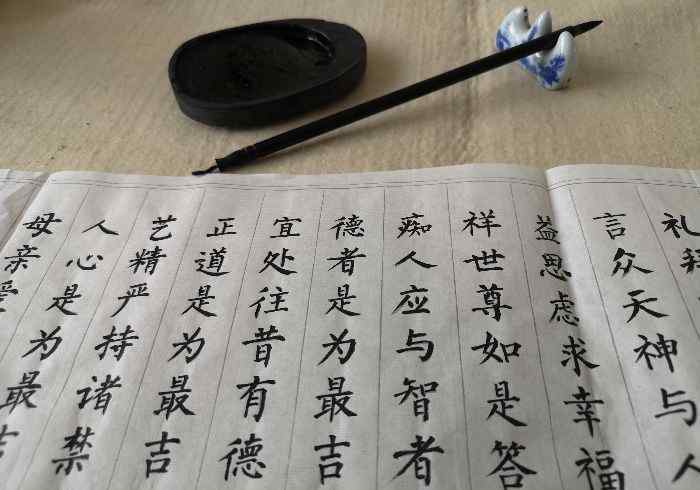 礼
言众天神与人
益思虑求幸福
祥世尊如是答
痴人应与智者
德者是为最吉
宜处往昔有德
正道是为最吉
艺精严持诸禁
人心是为最吉
母亲